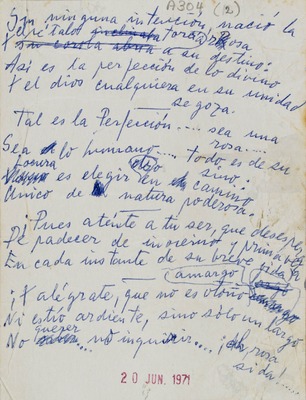 A304 (2)
Sin ninguna intención, nació la
rosa
a su destino:
Así es la perfección de lo divino
Y el dios cualquiera en su unidad
se goza.
Tal es la Perfección..... sea una
rosa....
Sea lo humano..... todo es de su
sino:
Locura es elegir en camino
Único de natura poderosa.
Pues aténte a tu ser, que desesper
De padecer de invierno y primavera
En cada instante de su breve vida
(amargo)
¡Y alégrate, que no es otoño amargo
Ni estío ardiente, sino sólo un largo
querer
No .... no inquirir....! ¡Ah, rosa
sida!....
20 JUN. 1971